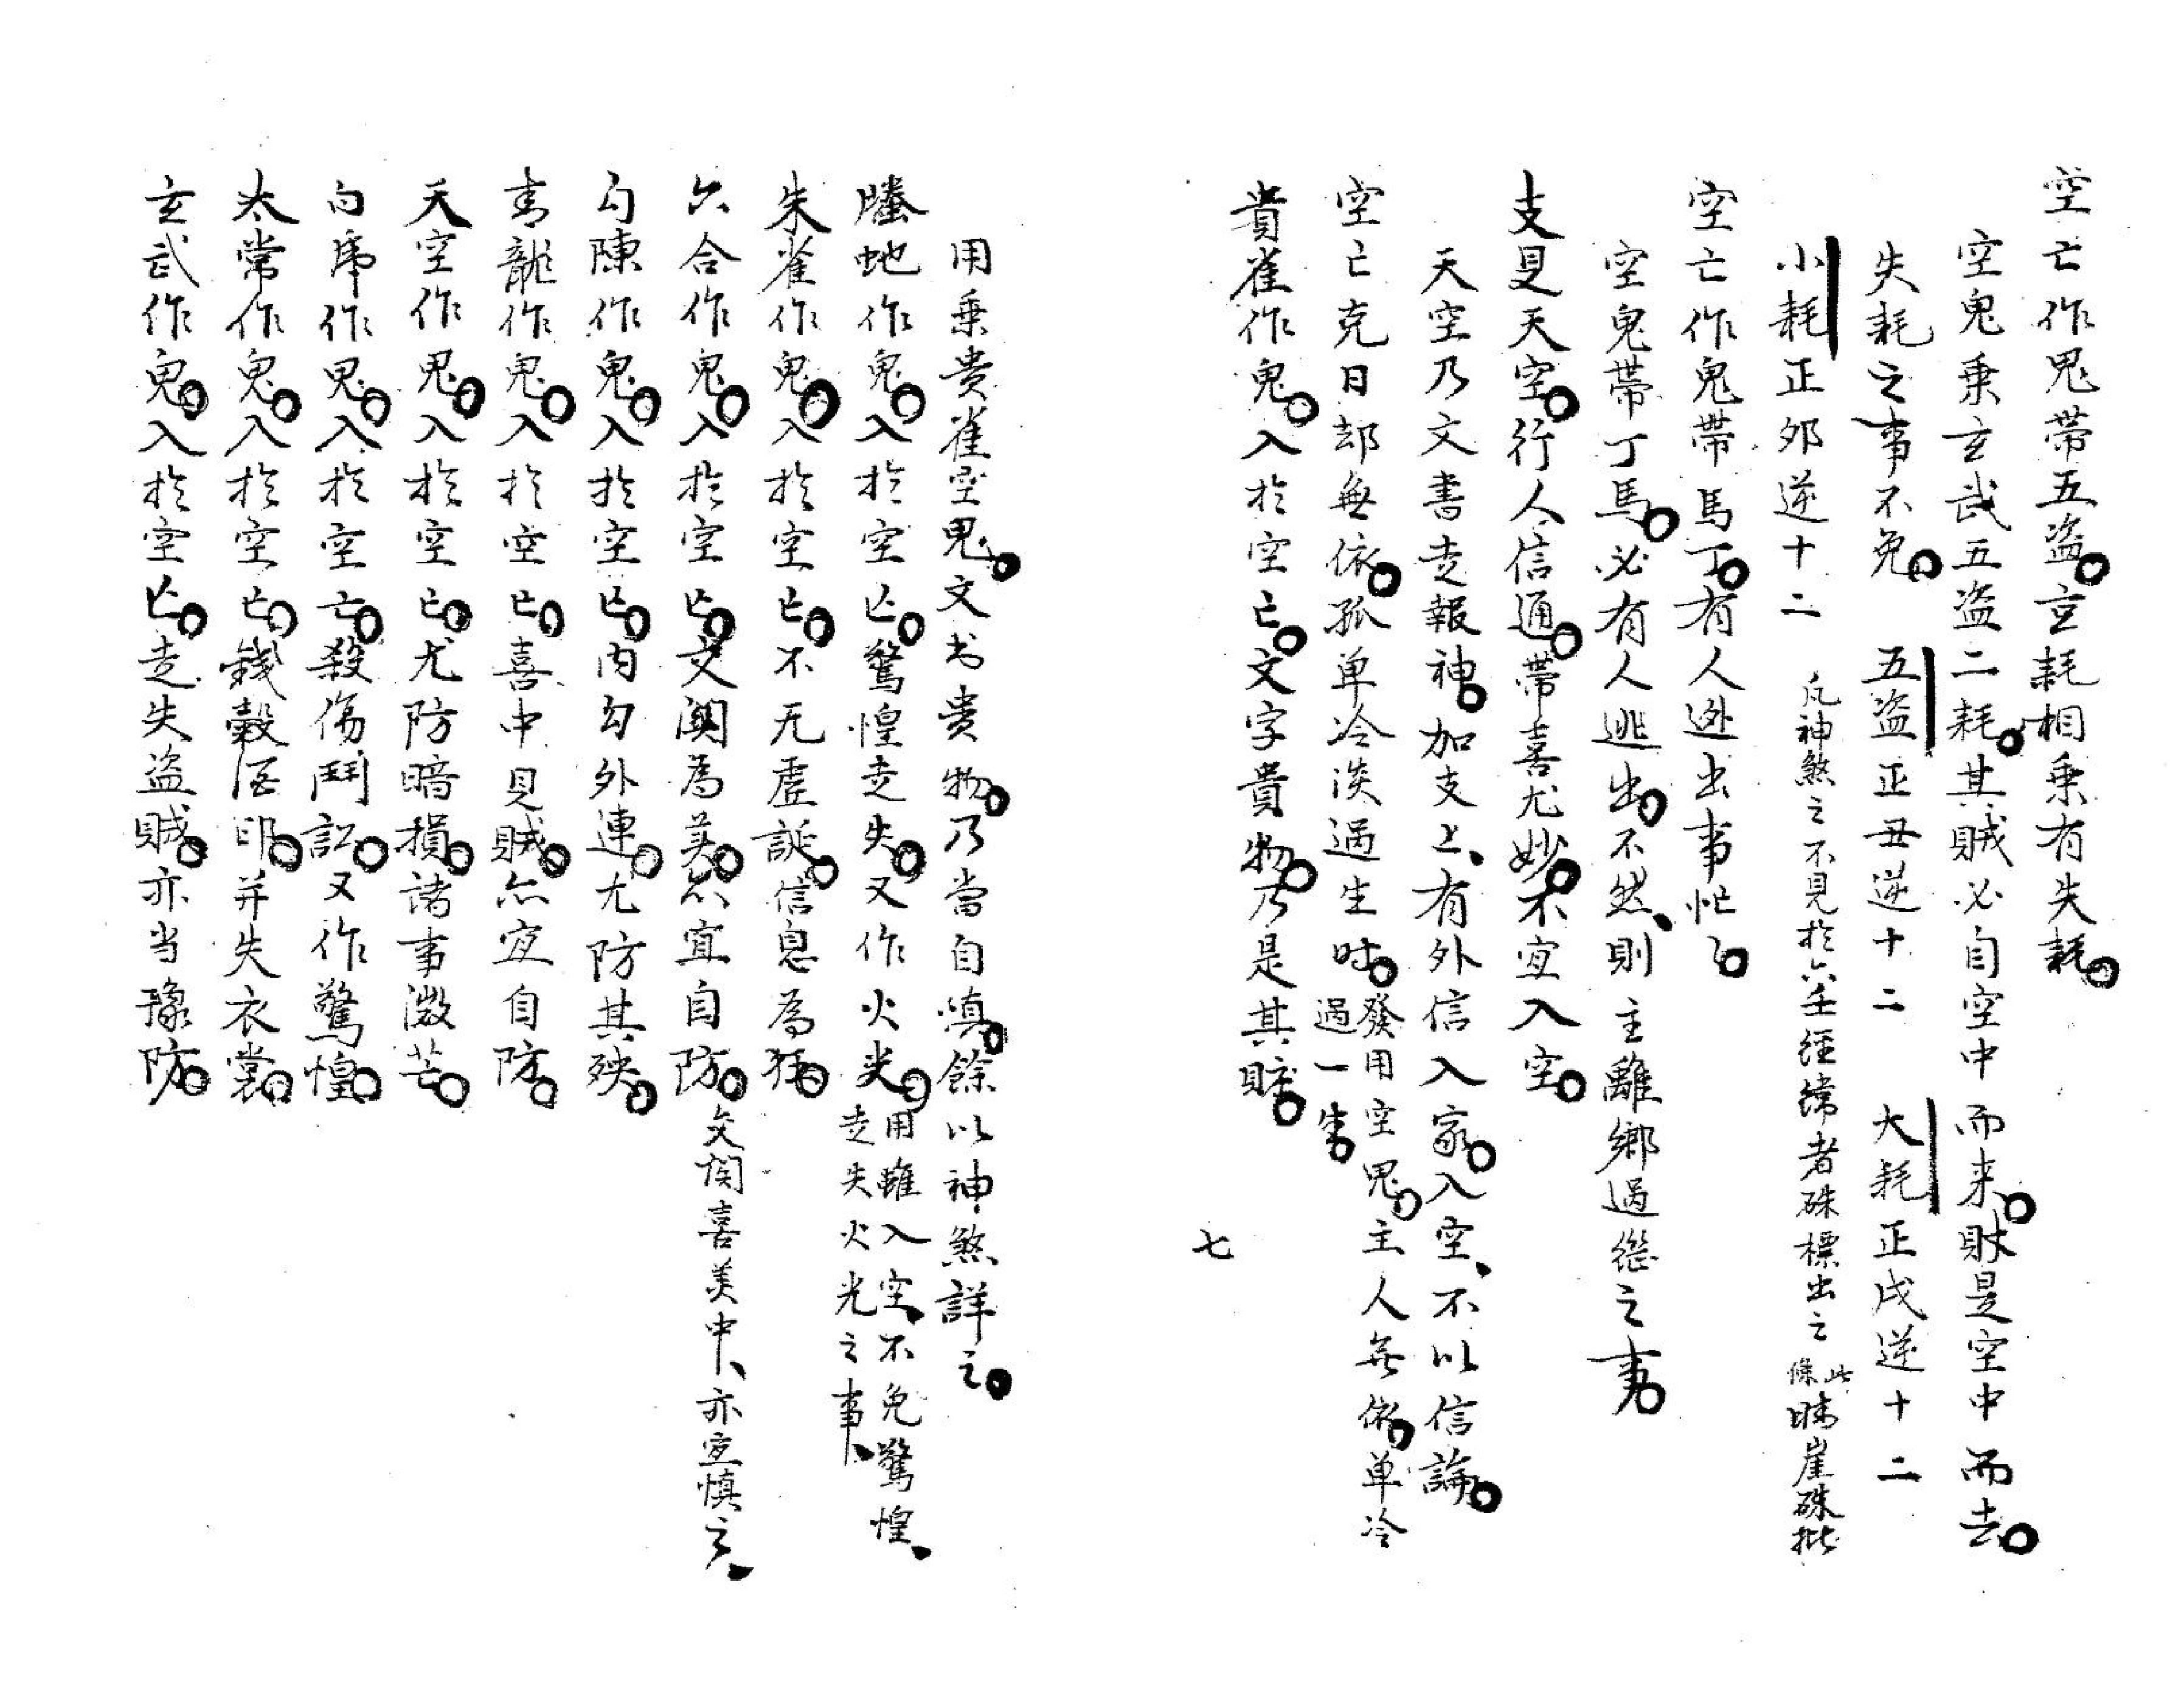 空亡作鬼帶五盜。玄耗相乘有失耗。
空鬼乘玄武五盜二耗。其賊必自空中而来。財是空中而去。
失耗之事不免。 五盜正丑逆十二 大耗正戌逆十二
小耗正卯逆十二 凡神煞之不見於六壬經緯者硃標出之 此條 崖硃批
空亡作鬼帶馬丁。有人迯出事忙忙。
空鬼帶丁馬。必有人逃出。不然、則主離鄉過繼之事。
支見天空。行人信通。帶喜尤妙。不宜入空。
天空乃文書走報神。加支上、有外信入家。入空、不以信論。
空亡克日却無依。孤单冷淡過生时。發用空鬼。主人無依。单冷
過一生。
貴雀作鬼。入於空亡。文字貴物。乃是其賍。
七
用乘貴雀空鬼。文书贵物。乃當自慎。餘以神煞詳之。
螣虵作鬼。入於空亡。驚惶走失。又作火光。用雖入空、不免驚惶、
走失火光之事、
朱雀作鬼。入於空亡。不无虛誕。信息為殃。
六合作鬼。入於空亡。交関為美。亦宜自防。交関喜美中、亦宜慎之、
勾陳作鬼。入於空亡。内勾外連。尤防其殃。
青龍作鬼。入於空亡。喜中見賊。亦宜自防。
天空作鬼。入於空亡。尤防暗損。諸事渺茫。
白虎作鬼。入於空亡。殺傷鬪訟。又作驚惶。
太常作鬼。入於空亡。錢穀酒印。并失衣裳。
玄武作鬼。入於空亡。走失盜賊。亦当豫防。